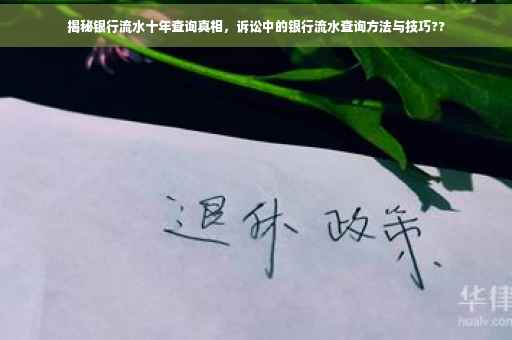 揭秘银行流水十年查询真相，诉讼中的银行流水查询方法与技巧??
退休 政策
华律
hualv.com